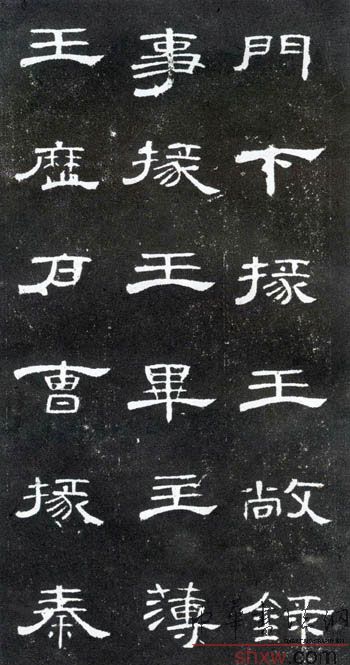 門下掾王敞錄
事掾王畢主薄
王歷戶曹掾秦
shxw.com